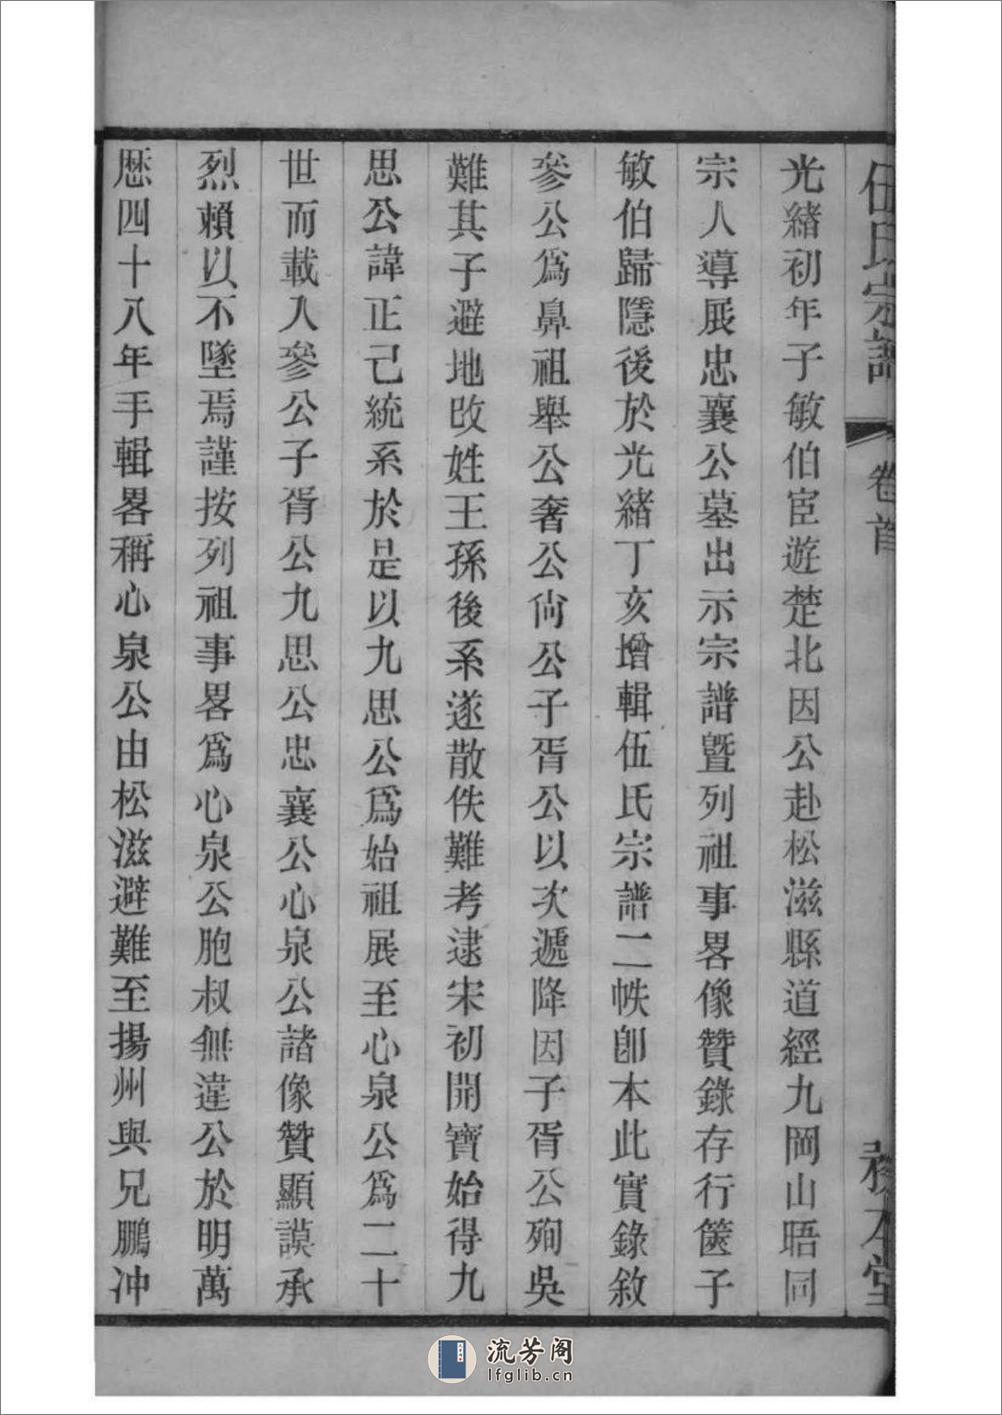 伍氏宗譜 卷首 務本堂
光緒初年子敏伯宦遊楚北因公赴松滋縣道經九岡山晤同
宗人導展忠襄公墓出示宗譜曁列祖事畧像贊錄存行篋子
敏伯歸隱後於光緒丁亥增輯伍氏宗譜二帙卽本此實錄敘
參公爲鼻祖舉公奢公尙公子胥公以次遞降因子胥公殉吳
難其子避地改姓王孫後系遂散佚難考逮宋初開寶始得九
思公諱正己統系於是以九思公爲始祖展至心泉公爲二十
世而載入參公子胥公九思公忠襄公心泉公諸像贊顯謨承
烈賴以不墜焉謹按列祖事畧爲心泉公胞叔無違公於明萬
厯四十八年手輯畧稱心泉公由松滋避難至揚州與兄鵬冲
流芳阁
lfglib.cn